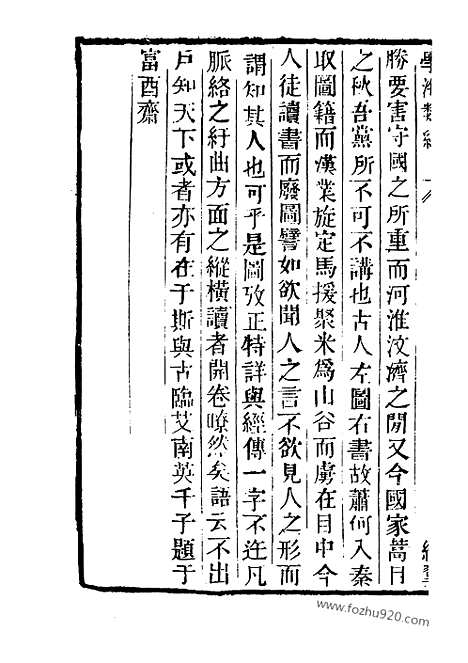 學海類編
勝要害守國之所重而河淮汶濟之閒又今國家蒿目
之秋吾黨所不可不講也古人左圖右書故蕭何入秦
取圖籍而漢業旋定馬援聚米爲山谷而虜在目中今
人徒讀書而廢圖譬如欲聞人之言不欲見人之形而
謂知其人也可乎是圖攷正特詳與經傳一字不迕凡
脈絡之紆曲方面之縱橫讀者開卷瞭然矣語云不出
戶知天下或者亦有在于斯與古臨艾南英千子題于
富酉齋
www.fozhu920.com